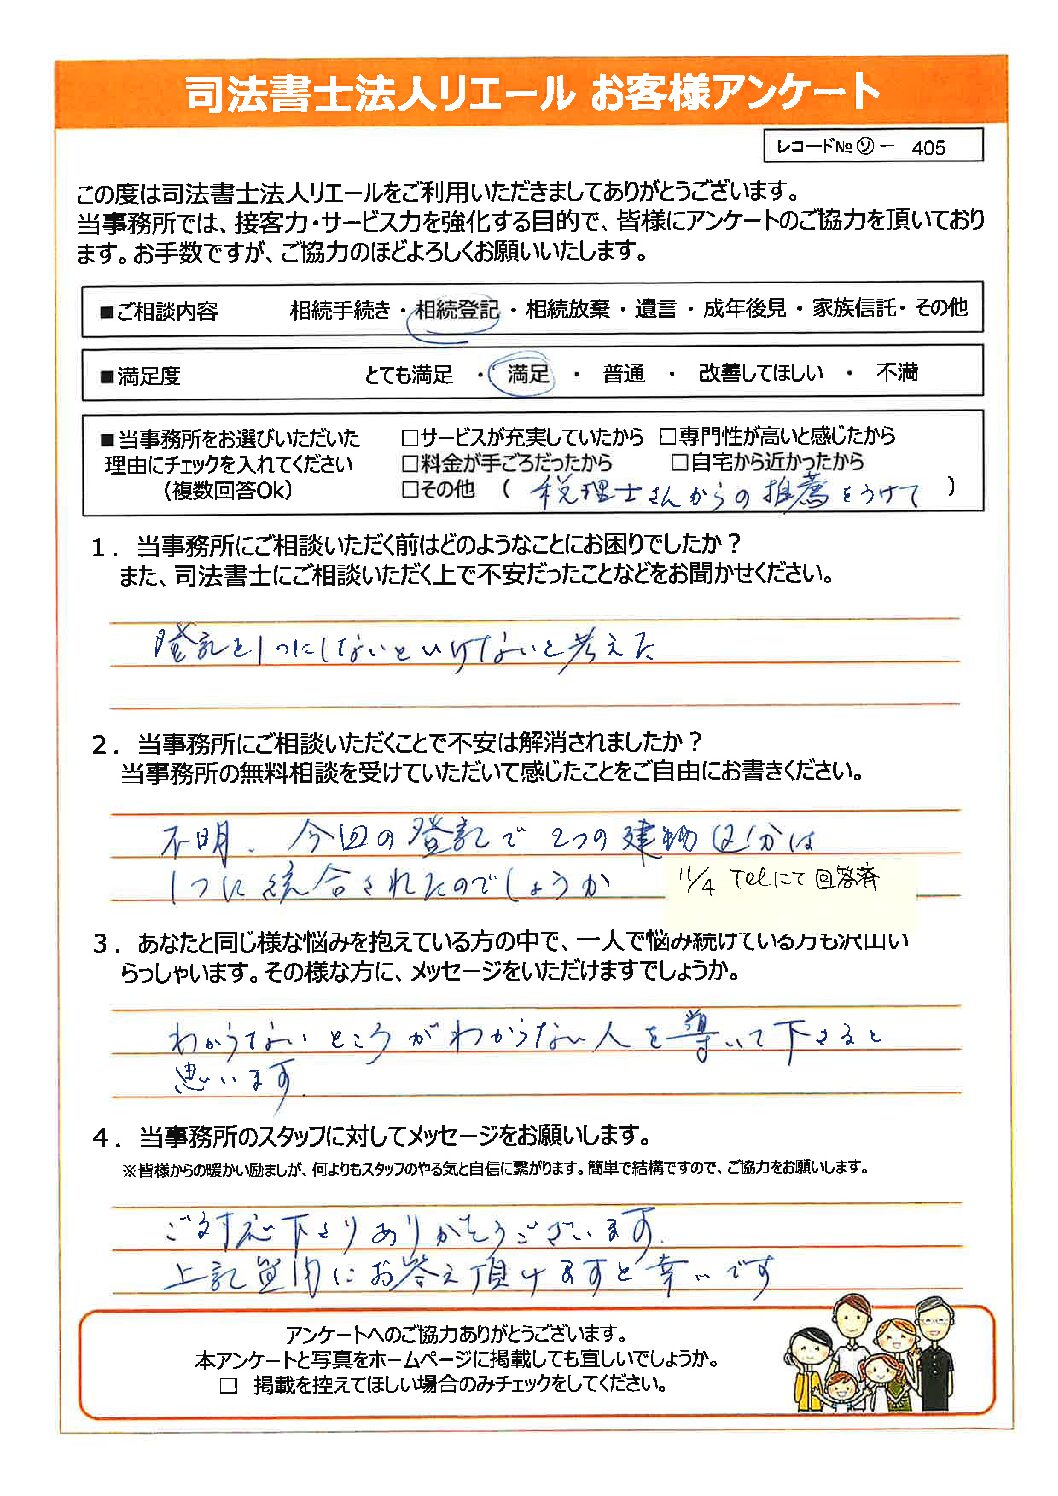 司法書士法人リエール お客様アンケート
レコード№㋷－ 405
この度は司法書士法人リエールをご利用いただきましてありがとうございます。
当事務所では、接客力・サービス力を強化する目的で、皆様にアンケートのご協力を頂いており
ます。お手数ですが、ご協力のほどよろしくお願いいたします。
■ご相談内容 相続手続き・相続登記・相続放棄・遺言・成年後見・家族信託・その他
■満足度 とても満足 ・ 満足 ・ 普通 ・ 改善してほしい ・ 不満
■当事務所をお選びいただいた □サービスが充実していたから □専門性が高いと感じたから
理由にチェックを入れてください □料金が手ごろだったから □自宅から近かったから
（複数回答Ok） □その他 （ 税理士さんからの推薦をうけて ）
１．当事務所にご相談いただく前はどのようなことにお困りでしたか？
また、司法書士にご相談いただく上で不安だったことなどをお聞かせください。
登記を1つにしないといけないと考えた
２．当事務所にご相談いただくことで不安は解消されましたか？
当事務所の無料相談を受けていただいて感じたことをご自由にお書きください。
不明、今回の登記で2つの建物区分は
1つに統合されたのでしょうか
11/4 Telにて回答済
３．あなたと同じ様な悩みを抱えている方の中で、一人で悩み続けている方も沢山い
らっしゃいます。その様な方に、メッセージをいただけますでしょうか。
わからないところがわからない人を導いて下さると
思います.
４．当事務所のスタッフに対してメッセージをお願いします。
※皆様からの暖かい励ましが、何よりもスタッフのやる気と自信に繋がります。簡単で結構ですので、ご協力をお願いします。
ご対応下さりありがとうございます.
上記質問にお答え頂けますと幸いです
アンケートへのご協力ありがとうございます。
本アンケートと写真をホームページに掲載しても宜しいでしょうか。
□ 掲載を控えてほしい場合のみチェックをしてください。